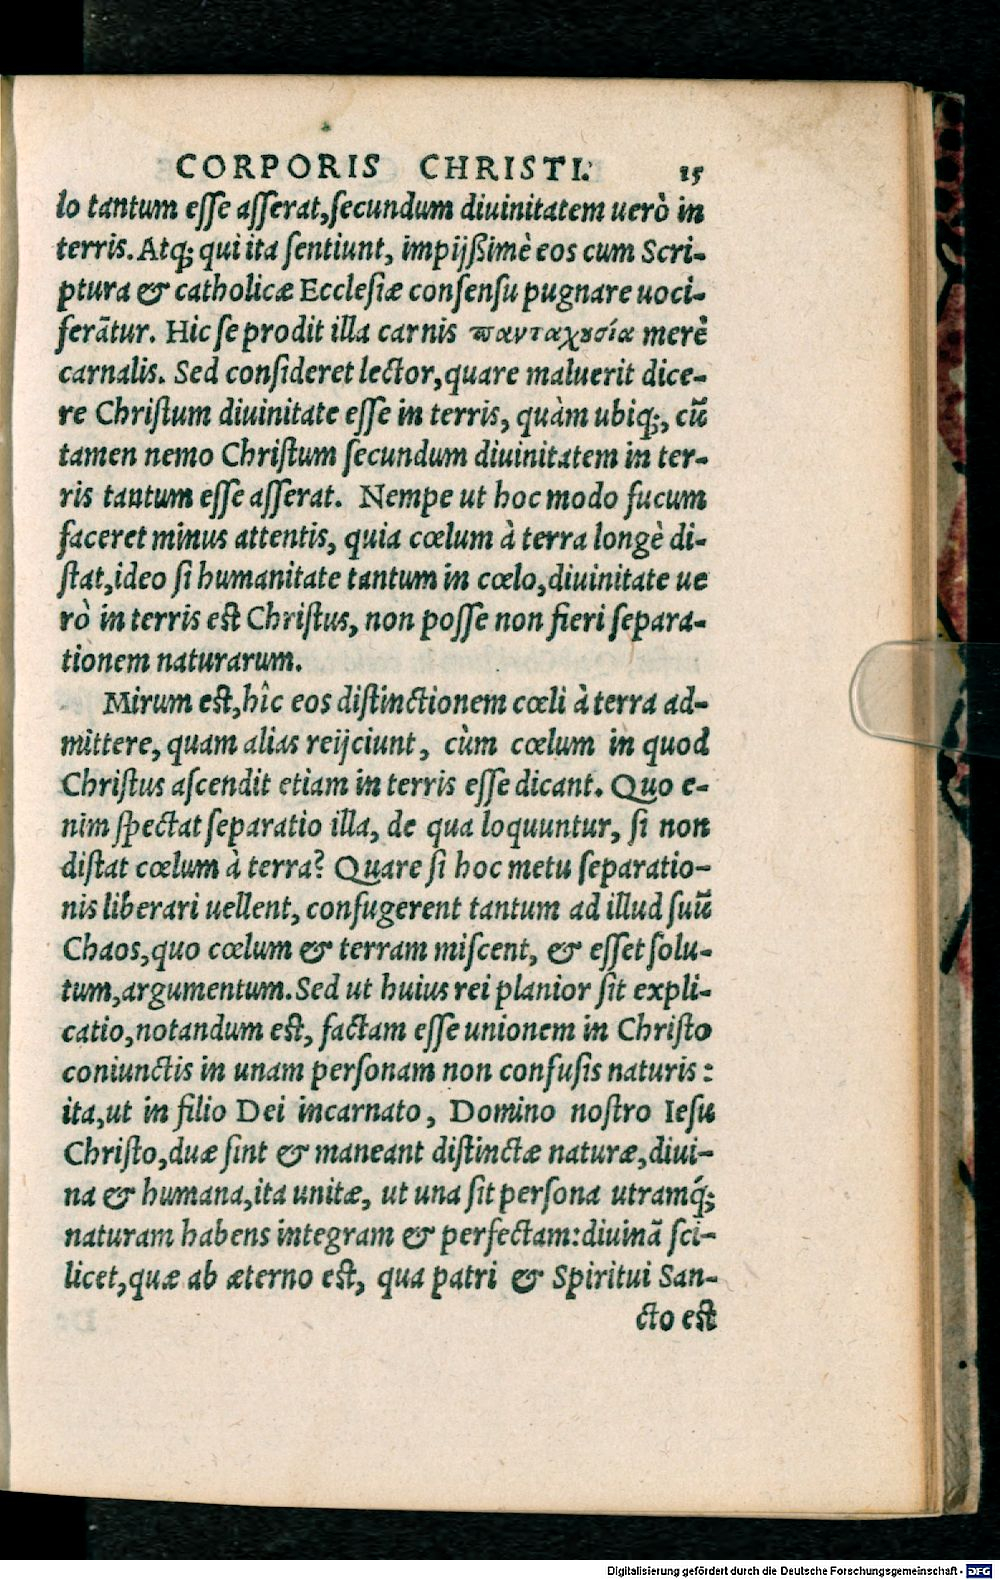 CORPORIS CHRISTI. 15
lo tantum esse asserat, secundum diuinitatem uerò in
terris. Atq; qui ita sentiunt, impijßimè eos cum Scri-
ptura & catholicæ Ecclesiæ consensu pugnare uoci-
ferãtur. Hic se prodit illa carnis πανταχȣσία merè
carnalis. Sed consideret lector, quare maluerit dice-
re Christum diuinitate esse in terris, quàm ubiq;, cũ
tamen nemo Christum secundum diuinitatem in ter-
ris tantum esse asserat. Nempe ut hoc modo fucum
faceret minus attentis, quia cœlum à terra longè di-
stat, ideo si humanitate tantum in cœlo, diuinitate ue
rò in terris est Christus, non posse non fieri separa-
tionem naturarum.
Mirum est, hîc eos distinctionem cœli à terra ad-
mittere, quam alias reijciunt, cùm cœlum in quod
Christus ascendit etiam in terris esse dicant. Quo e-
nim spectat separatio illa, de qua loquuntur, si non
distat cœlum à terra? Quare si hoc metu separatio-
nis liberari uellent, confugerent tantum ad illud suũ
Chaos, quo cœlum & terram miscent, & esset solu-
tum, argumentum. Sed ut huius rei planior sit expli-
catio, notandum est, factam esse unionem in Christo
coniunctis in unam personam non confusis naturis:
ita, ut in filio Dei incarnato, Domino nostro Iesu
Christo, duæ sint & maneant distinctæ naturæ, diui-
na & humana, ita unitæ, ut una sit persona utramq́;
naturam habens integram & perfectam: diuinã sci-
licet, quæ ab æterno est, qua patri & Spiritui San-
cto est
Digitalisierung gefördert durch die Deutsche Forschungsgemeinschaft - DFG